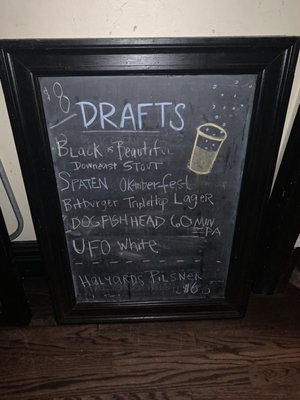 $8
DRAFTS
BLACK is Beautiful
Downeast STOUT
SPATEN Oktoberfest
Bitburger Triple Hop Lager
DOGFISH HEAD 60 MIN
IPA
UFO White
HALYARDS PILSNER
$6